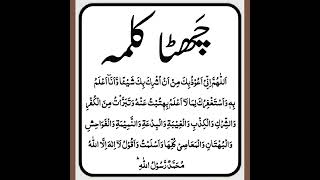 چَھٹا کلمہ
اَللّٰھُمَّ اِنِّیْ اَعُوْذُبِكَ مِنْ اَنْ اُشْرِكَ بِكَ شَیْئًا وَّاَنَا اَعْلَمُ
بِهٖ وَاَسْتَغْفِرُكَ لِمَا لَا اَعْلَمُ بِهٖ تُبْتُ عَنْهُ وَتَبَرَّأْتُ مِنَ الْكُفْرِ
وَالشِّرْكِ وَالْكِذْبِ وَالْغِیْبَةِ وَالْبِدْعَةِ وَالنَّمِیْمَةِ وَالْفَوَاحِشِ
وَالْبُهْتَانِ وَالْمَعَاصِیْ كُلِّهَا وَاَسْلَمْتُ وَاَقُوْلُ لَا اِلٰهَ اِلَّا اللّٰهُ
مُحَمَّدٌ رَّسُوْلُ اللّٰهِ